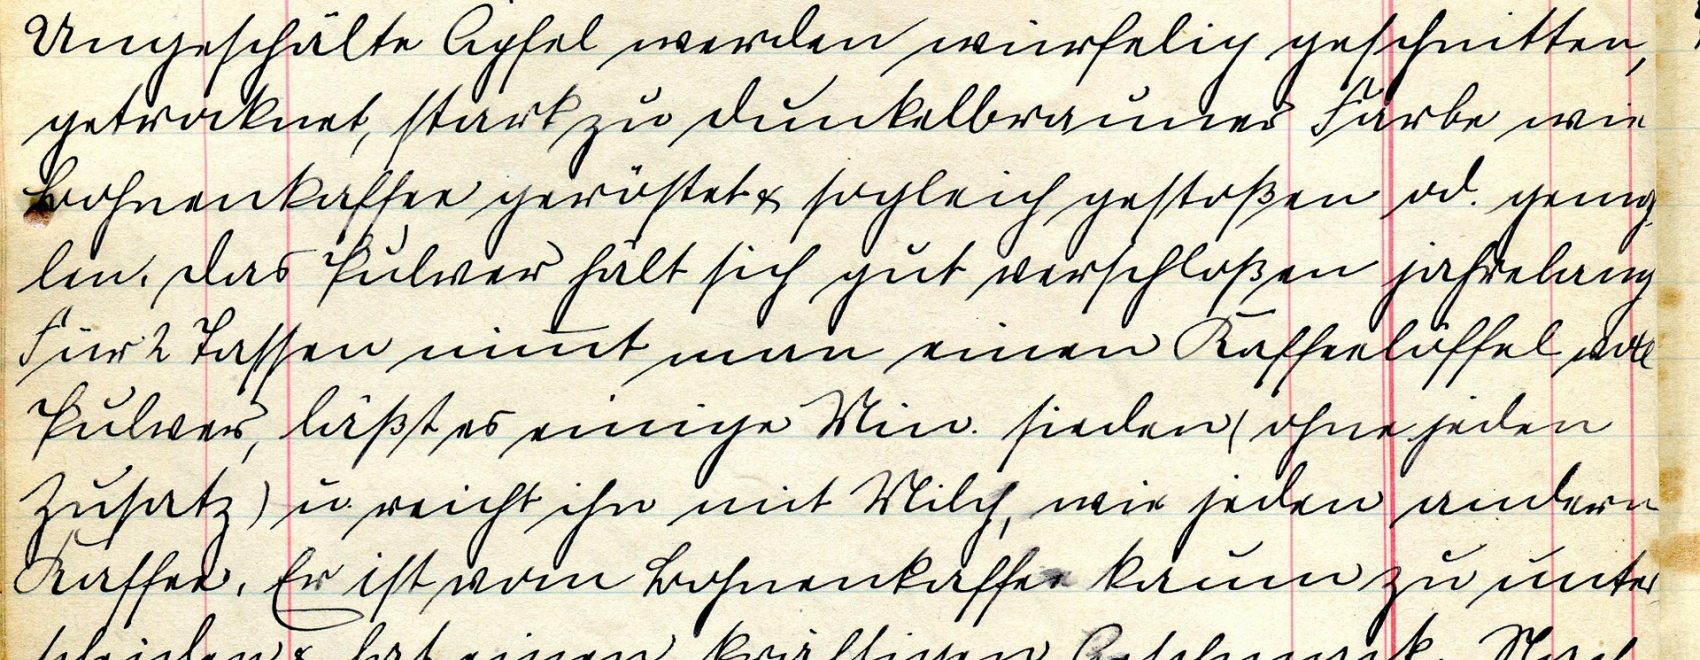 Ungeschälte Äpfel werden würfelig geschnitten,
getrocknet, stark zu dunkelbrauner Farbe wie
Bohnenkaffee geröstet & sogleich gestoßen od. gemah
len. Das Pulver hält sich gut verschloßen jahrelang
Für 2 Tassen nim̅t man einen Kaffeelöffel voll
Pulver, läßt es einige Min. sieden (ohne jeden
Zusatz) u. reicht ihn mit Milch, wie jeden andern
Kaffee. Er ist vom Bohnenkaffee kaum zu unter
scheiden & hat einen kräftigen Geschmack. Nach